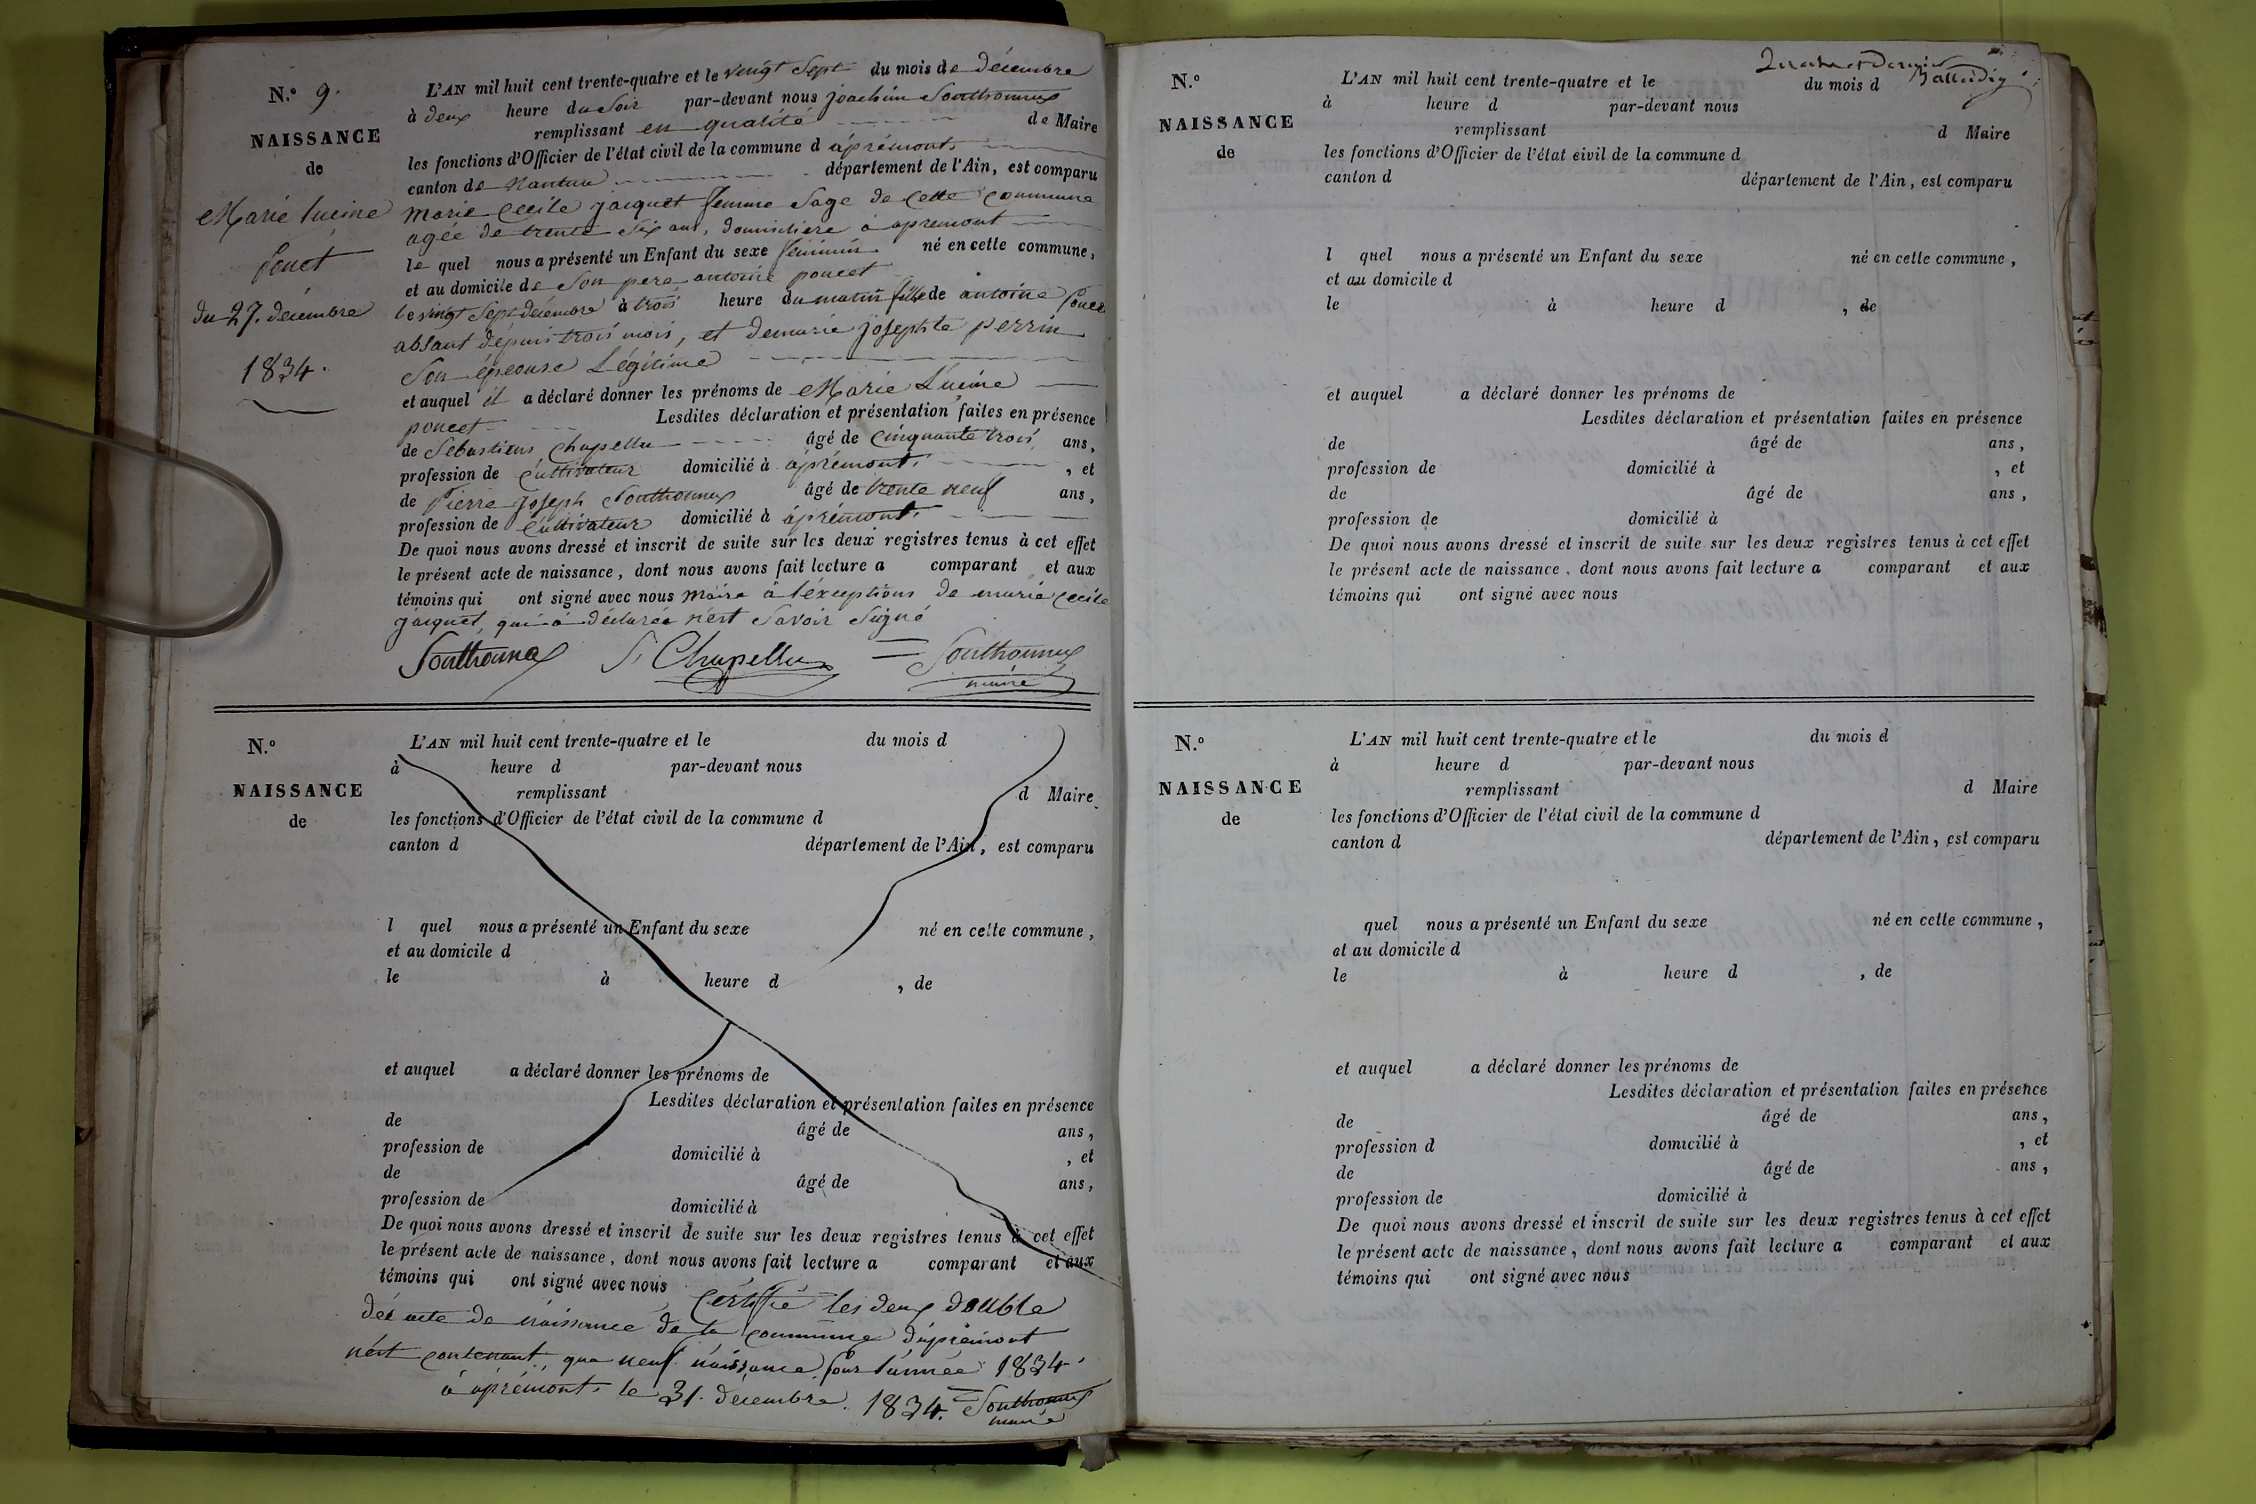 N.º 9.
NAISSANCE
de
Marie lucine
Poncet
du 27. décembre
1834.
L'AN mil huit cent trente-quatre et le vingt Sept du mois de décembre
à deux heure du Soir par-devant nous joachim Southonnax
remplissant en qualité de Maire
les fonctions d'Officier de l'état civil de la commune d áprémont
canton de Nantua département de l'Ain, est comparu
marie Cecile jacquet femme Sage de Cette Commune
agée de trente Six ans, domicilière à apremont
le quel nous a présenté un Enfant du sexe féminin né en cette commune,
et au domicile de Son pere antoine poncet
le vingt Sept décembre à trois heure du matin fille de antoine Poncet
absant dépuis trois mois, et de marie josephte perrin
Son épeouse Légitime
et auquel il a déclaré donner les prénoms de Marie Lucine
poncet Lesdites déclaration et présentation faites en présence
de Sebastiens Chapellu âgé de Cinquante trois ans,
profession de Cultivateur domicilié à áprémont. , et
de Pierre joseph Southonnax âgé de trente neuf ans,
profession de Cultivateur domicilié à áprémont.
De quoi nous avons dressé et inscrit de suite sur les deux registres tenus à cet effet
le présent acte de naissance, dont nous avons fait lecture a comparant et aux
témoins qui ont signé avec nous maire à l'éxceptions de marie Cecile
jacquet, qui à déclarée n'ést Savoir Signé
Southonnax S. Chapellu Southonnax
maire
N.º
NAISSANCE
de
L'AN mil huit cent trente-quatre et le du mois d
à heure d par-devant nous
remplissant d Maire
les fonctions d'Officier de l'état civil de la commune d
canton d département de l'Ain, est comparu
l quel nous a présenté un Enfant du sexe né en cette commune,
et au domicile d
le à heure d , de
et auquel a déclaré donner les prénoms de
Lesdites déclaration et présentation faites en présence
de âgé de ans,
profession de domicilié à , et
de âgé de ans,
profession de domicilié à
De quoi nous avons dressé et inscrit de suite sur les deux registres tenus à cet effet
le présent acte de naissance, dont nous avons fait lecture a comparant et aux
témoins qui ont signé avec nous
Certifié les deux double
dés acte de náissance de la Commune d'áprémont
n'ést contenant, que neuf náissance pour l'année 1834.
à áprémont. le 31. décembre. 1834. Southonnax
maire
et dernier
N.º
NAISSANCE
de
L'AN mil huit cent trente-quatre et le du mois d
à heure d par-devant nous
remplissant d Maire
les fonctions d'Officier de l'état civil de la commune d
canton d département de l'Ain, est comparu
l quel nous a présenté un Enfant du sexe né en cette commune,
et au domicile d
le à heure d , de
et auquel a déclaré donner les prénoms de
Lesdites déclaration et présentation faites en présence
de âgé de ans,
profession de domicilié à , et
de âgé de ans,
profession de domicilié à
De quoi nous avons dressé et inscrit de suite sur les deux registres tenus à cet effet
le présent acte de naissance, dont nous avons fait lecture a comparant et aux
témoins qui ont signé avec nous
N.º
NAISSANCE
de
L'AN mil huit cent trente-quatre et le du mois d
à heure d par-devant nous
remplissant d Maire
les fonctions d'Officier de l'état civil de la commune d
canton d département de l'Ain, est comparu
quel nous a présenté un Enfant du sexe né en cette commune,
et au domicile d
le à heure d , de
et auquel a déclaré donner les prénoms de
Lesdites déclaration et présentation faites en présence
de âgé de ans,
profession d domicilié à , et
de âgé de ans,
profession de domicilié à
De quoi nous avons dressé et inscrit de suite sur les deux registres tenus à cet effet
le présent acte de naissance, dont nous avons fait lecture a comparant et aux
témoins qui ont signé avec nous